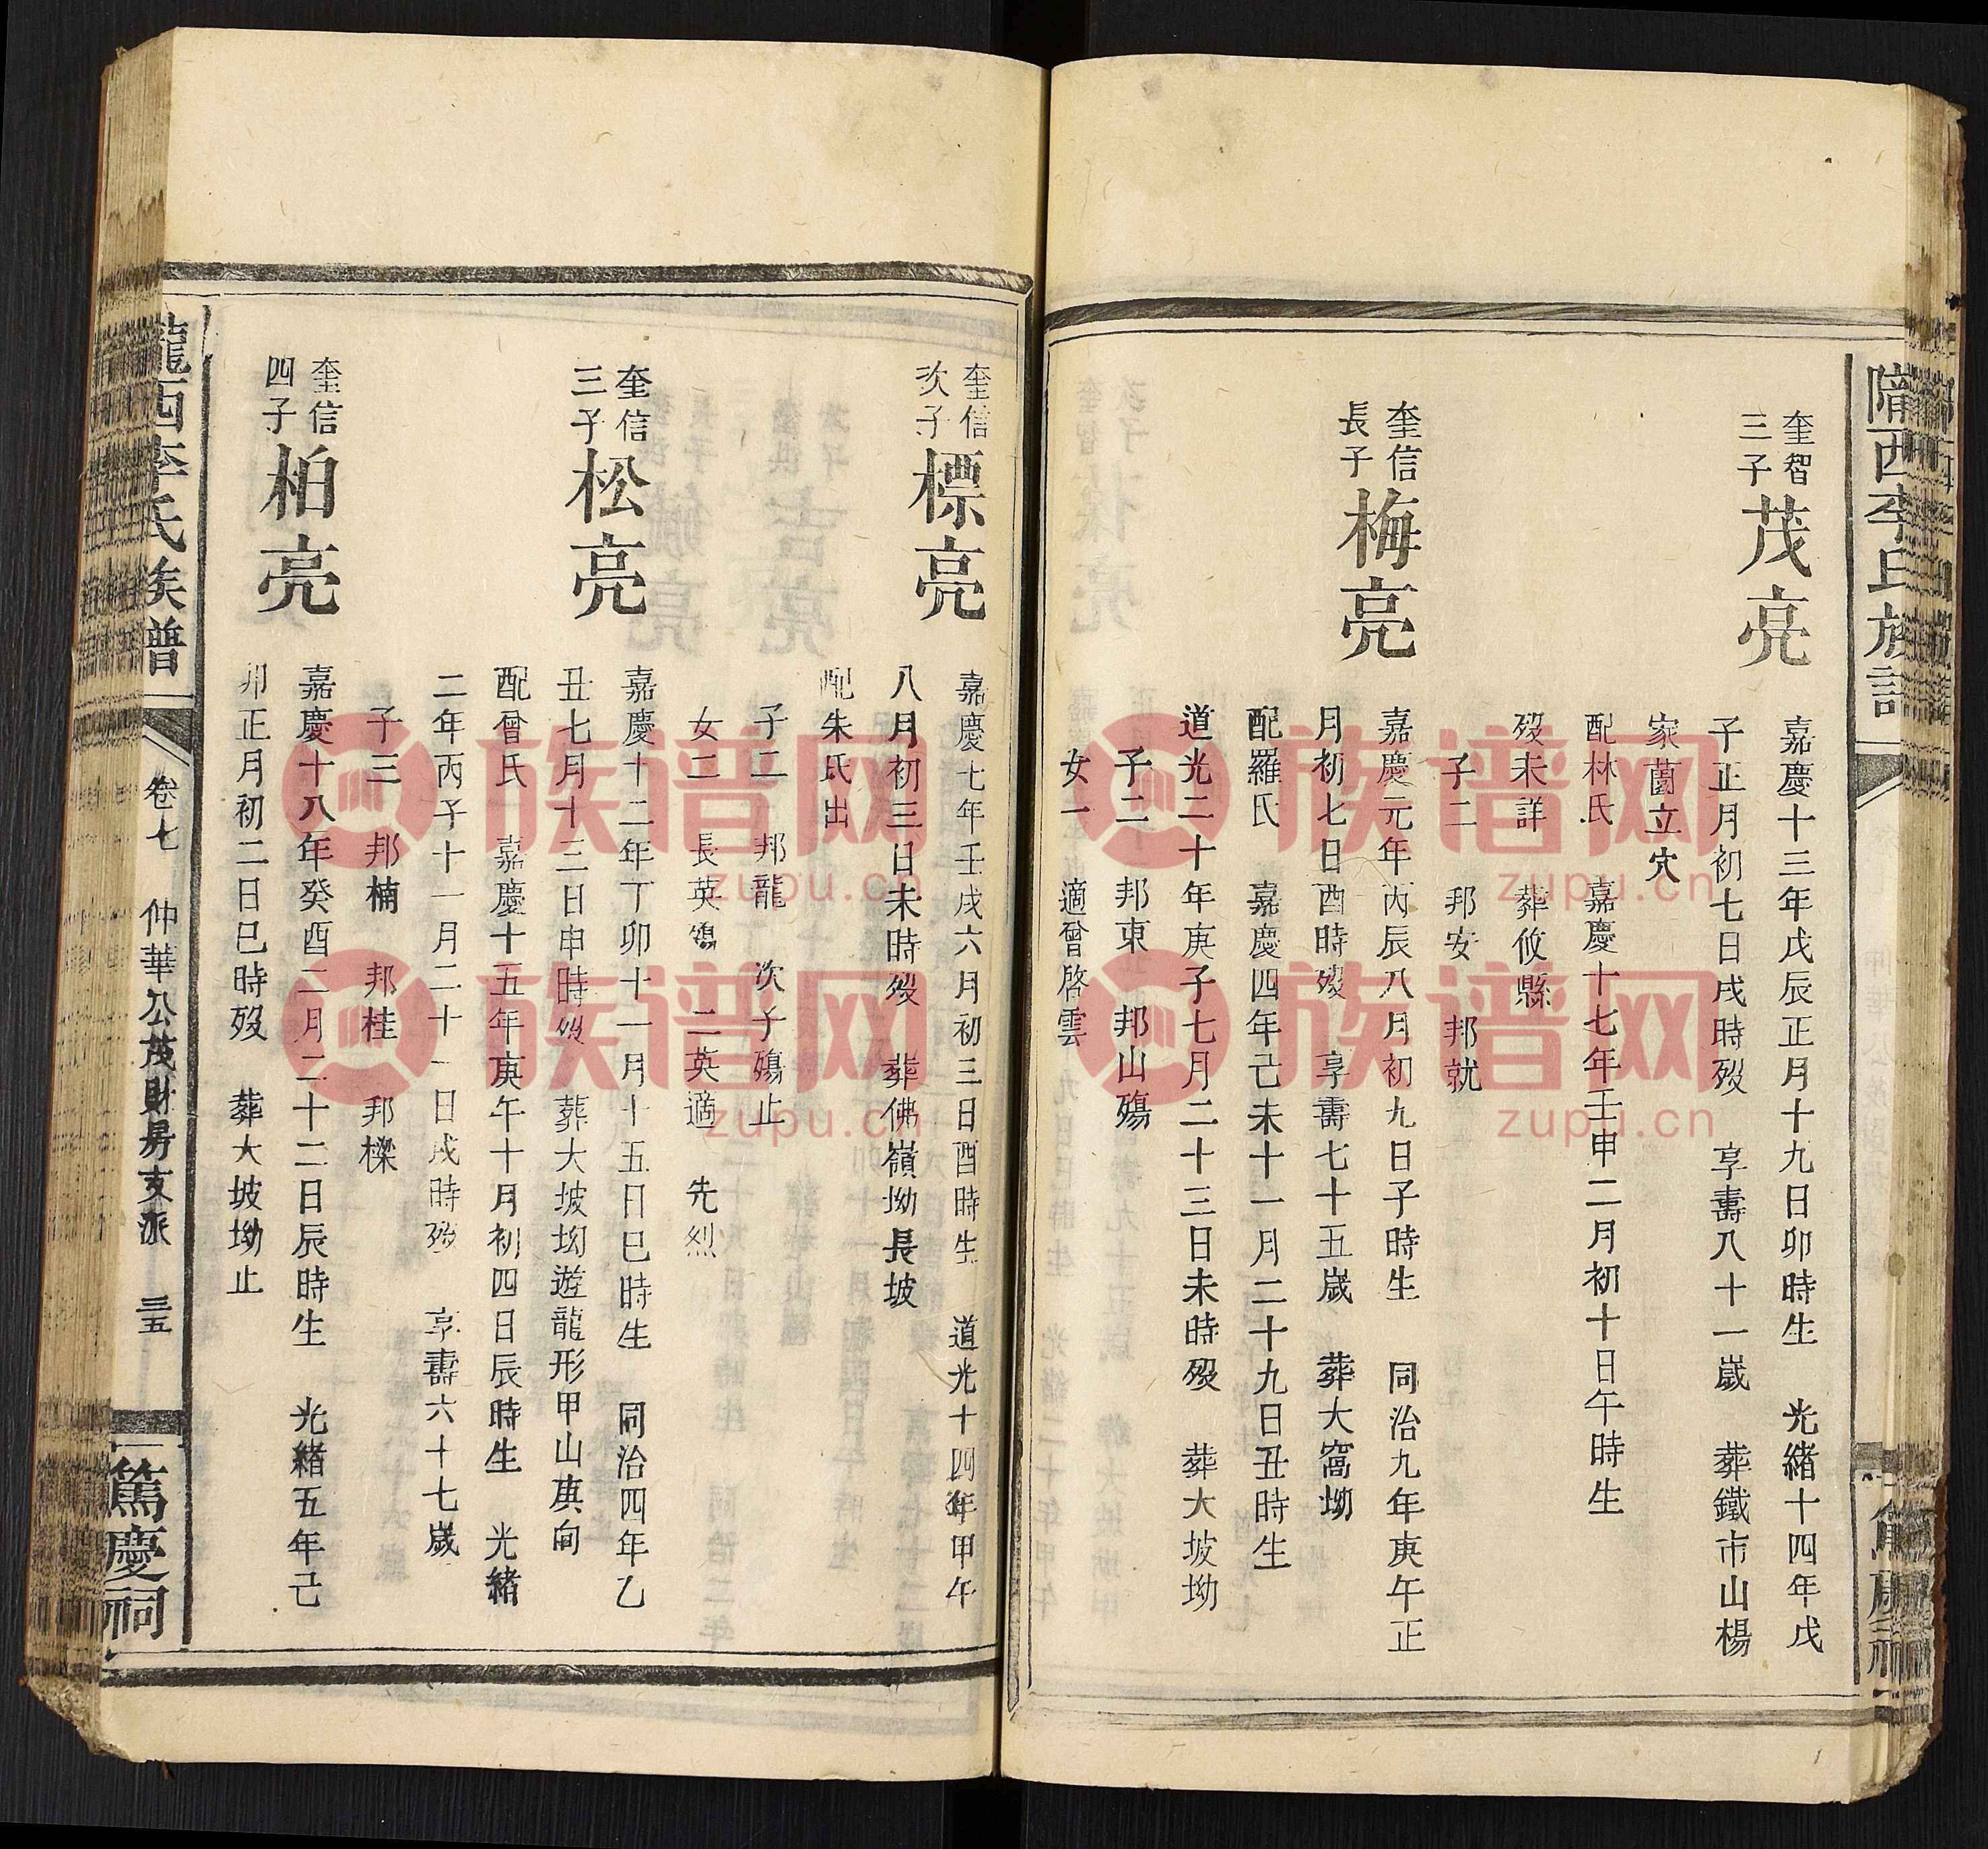 隴西李氏族譜
奎智
三子
茂亮
嘉慶十三年戊辰正月十九日卯時生 光緒十四年戊
子正月初七日戌時歿 享壽八十一歲 葬鐵市山楊
家薗立穴
配林氏 嘉慶十七年壬申二月初十日午時生
歿未詳 葬攸縣
子二 邦安 邦就
奎信
長子
梅亮
嘉慶元年丙辰八月初九日子時生 同治九年庚午正
月初七日酉時歿 享壽七十五歲 葬大窩坳
配羅氏 嘉慶四年己未十一月二十九日丑時生
道光二十年庚子七月二十三日未時歿 葬大坡坳
子二 邦東 邦山殤
女一 適曾啓雲
奎信
次子
標亮
嘉慶七年壬戌六月初三日酉時生 道光十四年甲午
八月初三日未時歿 葬佛嶺坳長坡
配朱氏出
子二 邦龍 次子殤止
女二 長英 二英適 先烈
奎信
三子
松亮
嘉慶十二年丁卯十一月十五日巳時生 同治四年乙
丑七月十三日申時歿 葬大坡坳遊龍形甲山庚向
配曾氏 嘉慶十五年庚午十月初四日辰時生 光緒
二年丙子十一月二十一日戌時歿 享壽六十七歲
子三 邦楠 邦桂 邦樑
奎信
四子
柏亮
嘉慶十八年癸酉二月二十二日辰時生 光緒五年己
卯正月初二日巳時歿 葬大坡坳止
隴西李氏族譜
卷七 仲華公茂財房支派 三五
篤慶祠
族谱网
zupu.cn
族谱网
zupu.cn
族谱网
zupu.cn
族谱网
zupu.cn